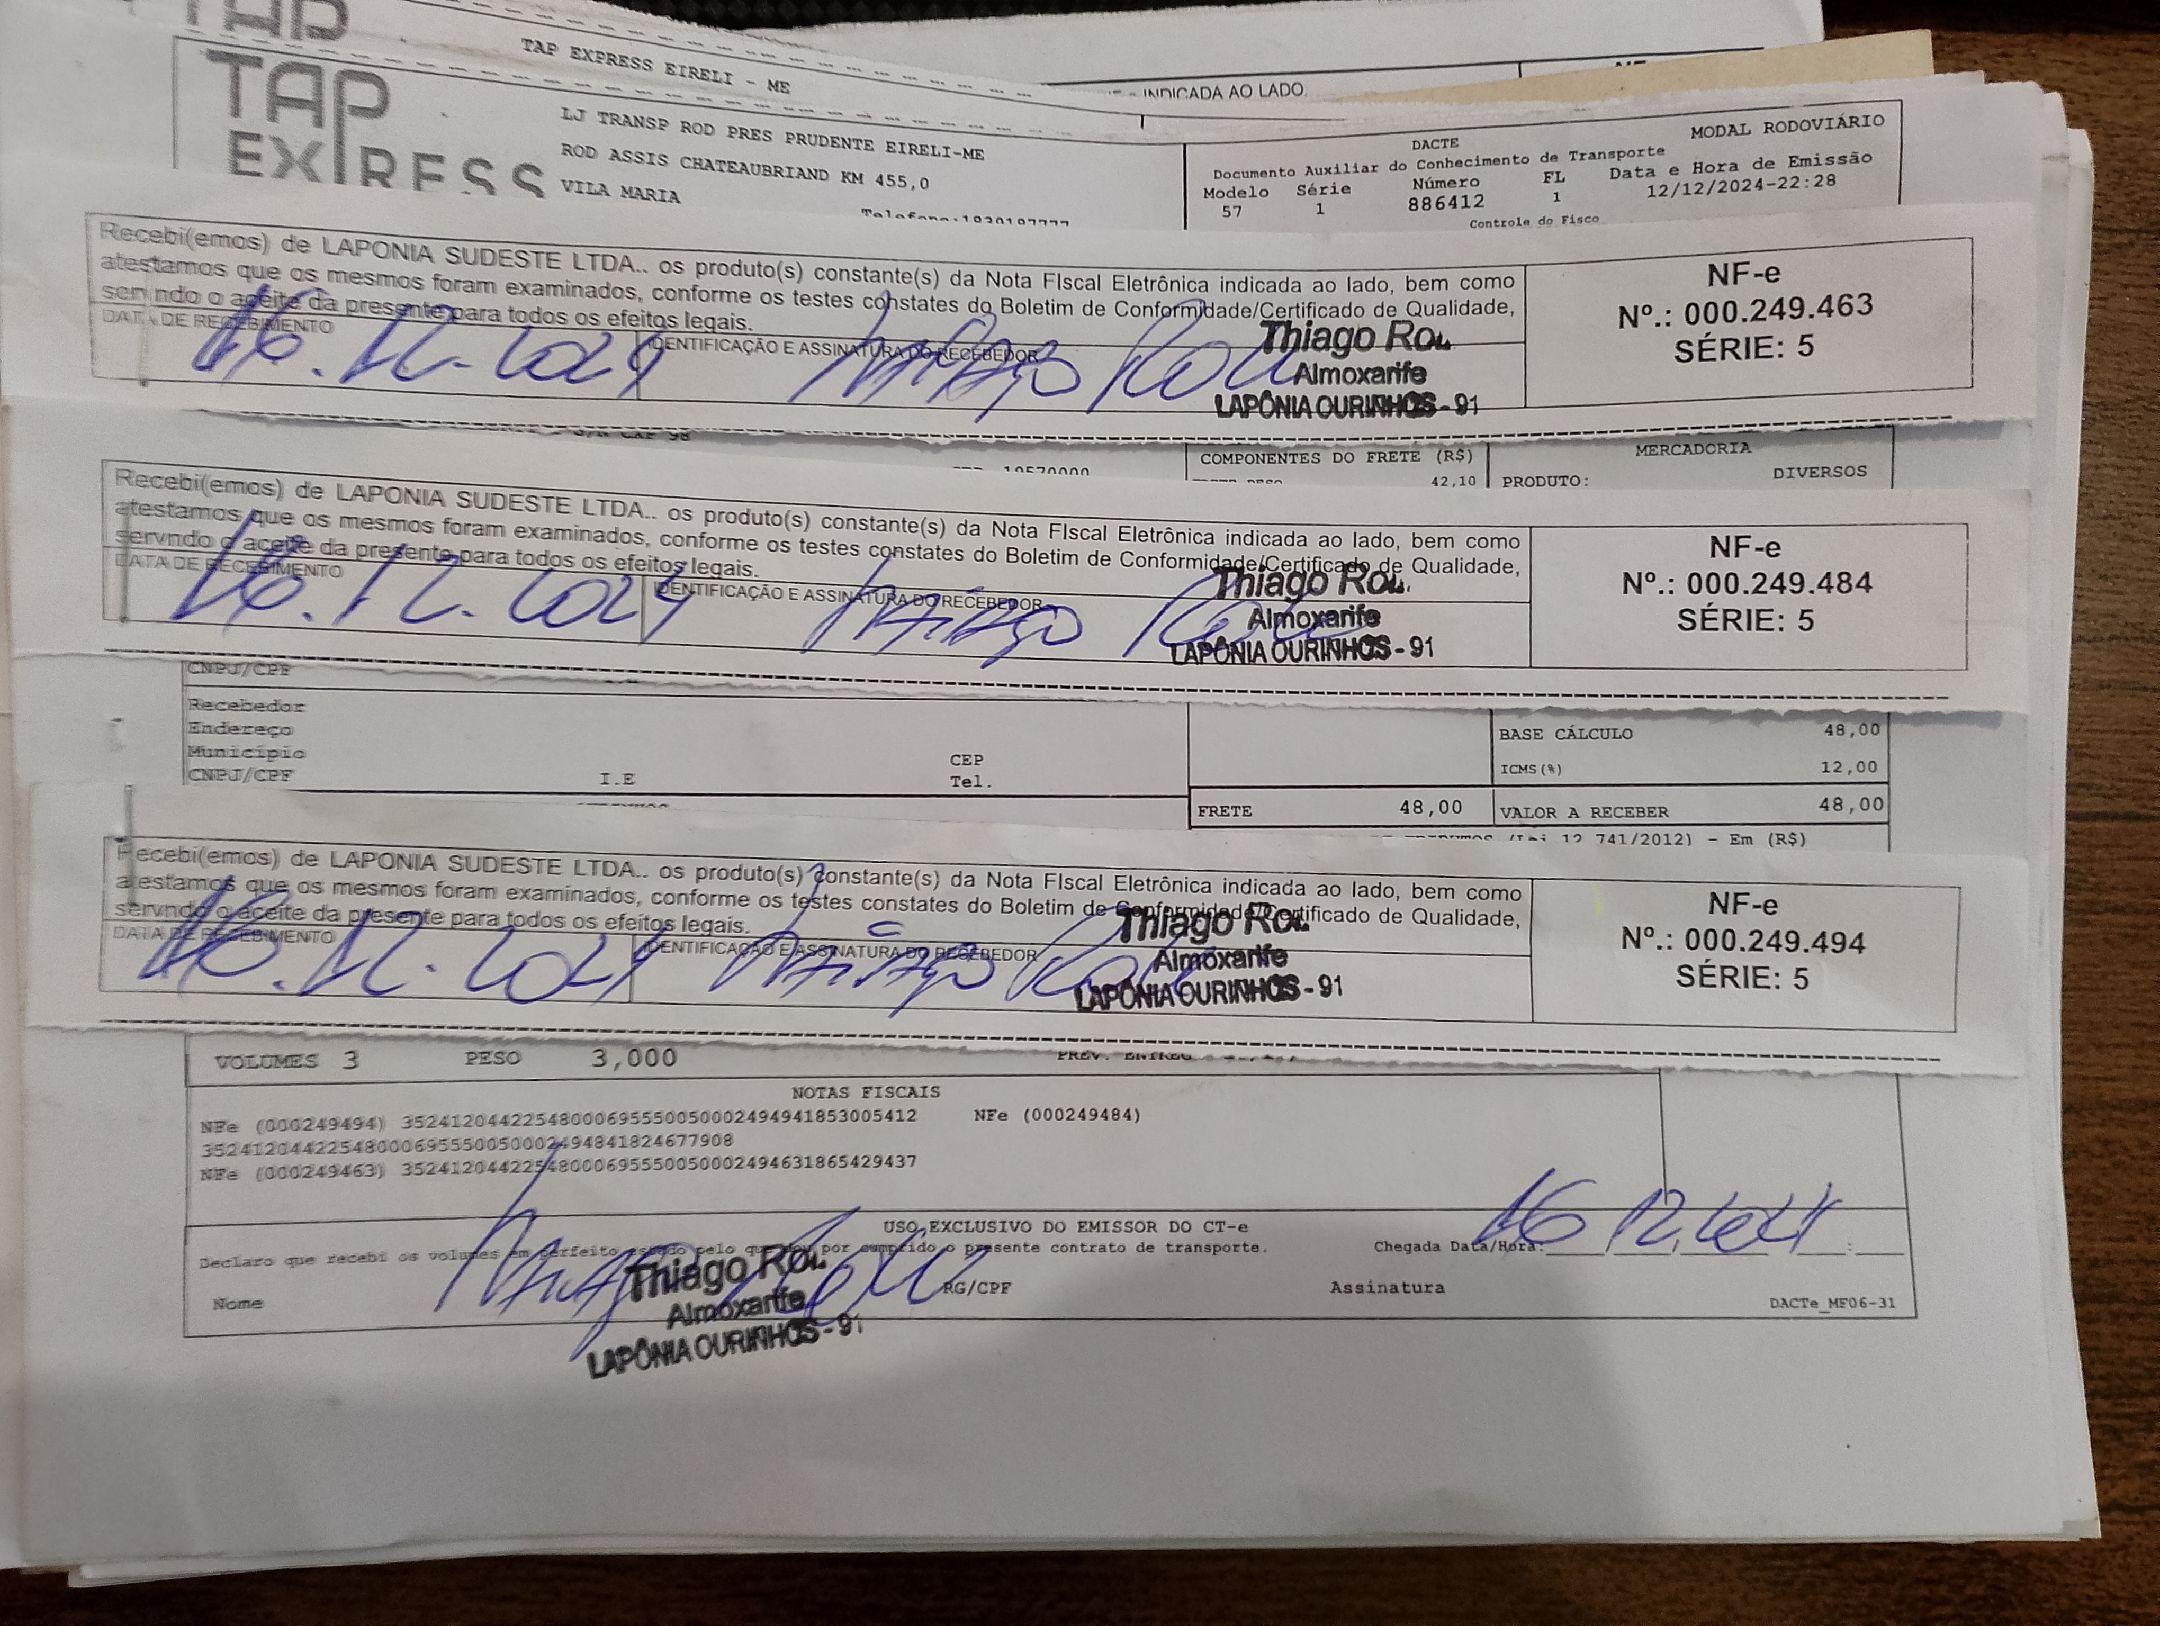 TAP
TAP EXPRESS EIRELI - ME
INDICADA AO LADO
TAP
EXPRESS
LJ TRANSP ROD PRES PRUDENTE EIRELI-ME
ROD ASSIS CHATEAUBRIAND KM 455,0
VILA MARIA
DACTE
MODAL RODOVIÁRIO
Documento Auxiliar do Conhecimento de Transporte
Modelo Série Número FL Data e Hora de Emissão
57 1 886412 1 12/12/2024-22:28
Controle do Fisco
Recebi(emos) de LAPONIA SUDESTE LTDA.. os produto(s) constante(s) da Nota FIscal Eletrônica indicada ao lado, bem como
atestamos que os mesmos foram examinados, conforme os testes constates do Boletim de Conformidade/Certificado de Qualidade,
servndo o aceite da presente para todos os efeitos legais.
DATA DE RECEBIMENTO
IDENTIFICAÇÃO E ASSINATURA DO RECEBEDOR
16.12.2024 Thiago
Thiago
Almoxarife
LAPÔNIA OURINHOS - 91
NF-e
Nº.: 000.249.463
SÉRIE: 5
COMPONENTES DO FRETE (R$)
42,10
MERCADORIA
PRODUTO: DIVERSOS
Recebi(emos) de LAPONIA SUDESTE LTDA.. os produto(s) constante(s) da Nota FIscal Eletrônica indicada ao lado, bem como
atestamos que os mesmos foram examinados, conforme os testes constates do Boletim de Conformidade/Certificado de Qualidade,
servndo o aceite da presente para todos os efeitos legais.
DATA DE RECEBIMENTO
IDENTIFICAÇÃO E ASSINATURA DO RECEBEDOR
16.12.2024 Thiago
Thiago
Almoxarife
LAPÔNIA OURINHOS - 91
NF-e
Nº.: 000.249.484
SÉRIE: 5
CNPJ/CPF
Recebedor
Endereço
Município CEP
CNPJ/CPF I.E Tel.
BASE CÁLCULO 48,00
ICMS(%) 12,00
FRETE 48,00 VALOR A RECEBER 48,00
(Lei 12 741/2012) - Em (R$)
Recebi(emos) de LAPONIA SUDESTE LTDA.. os produto(s) constante(s) da Nota FIscal Eletrônica indicada ao lado, bem como
atestamos que os mesmos foram examinados, conforme os testes constates do Boletim de Conformidade/Certificado de Qualidade,
servndo o aceite da presente para todos os efeitos legais.
DATA DE RECEBIMENTO
IDENTIFICAÇÃO E ASSINATURA DO RECEBEDOR
16.12.2024 Thiago
Thiago
Almoxarife
LAPÔNIA OURINHOS - 91
NF-e
Nº.: 000.249.494
SÉRIE: 5
VOLUMES 3 PESO 3,000
NOTAS FISCAIS
NFe (000249494) 35241204422548000695550050002494941853005412 NFe (000249484)
35241204422548000695550050002494841824677908
NFe (000249463) 35241204422548000695550050002494631865429437
USO EXCLUSIVO DO EMISSOR DO CT-e
Declaro que recebi os volumes em perfeito estado pelo que dou por cumprido o presente contrato de transporte.
Chegada Data/Hora: 16 12.2024
Nome Thiago RG/CPF Assinatura
Thiago
Almoxarife
LAPÔNIA OURINHOS - 91
DACTe_MF06-31